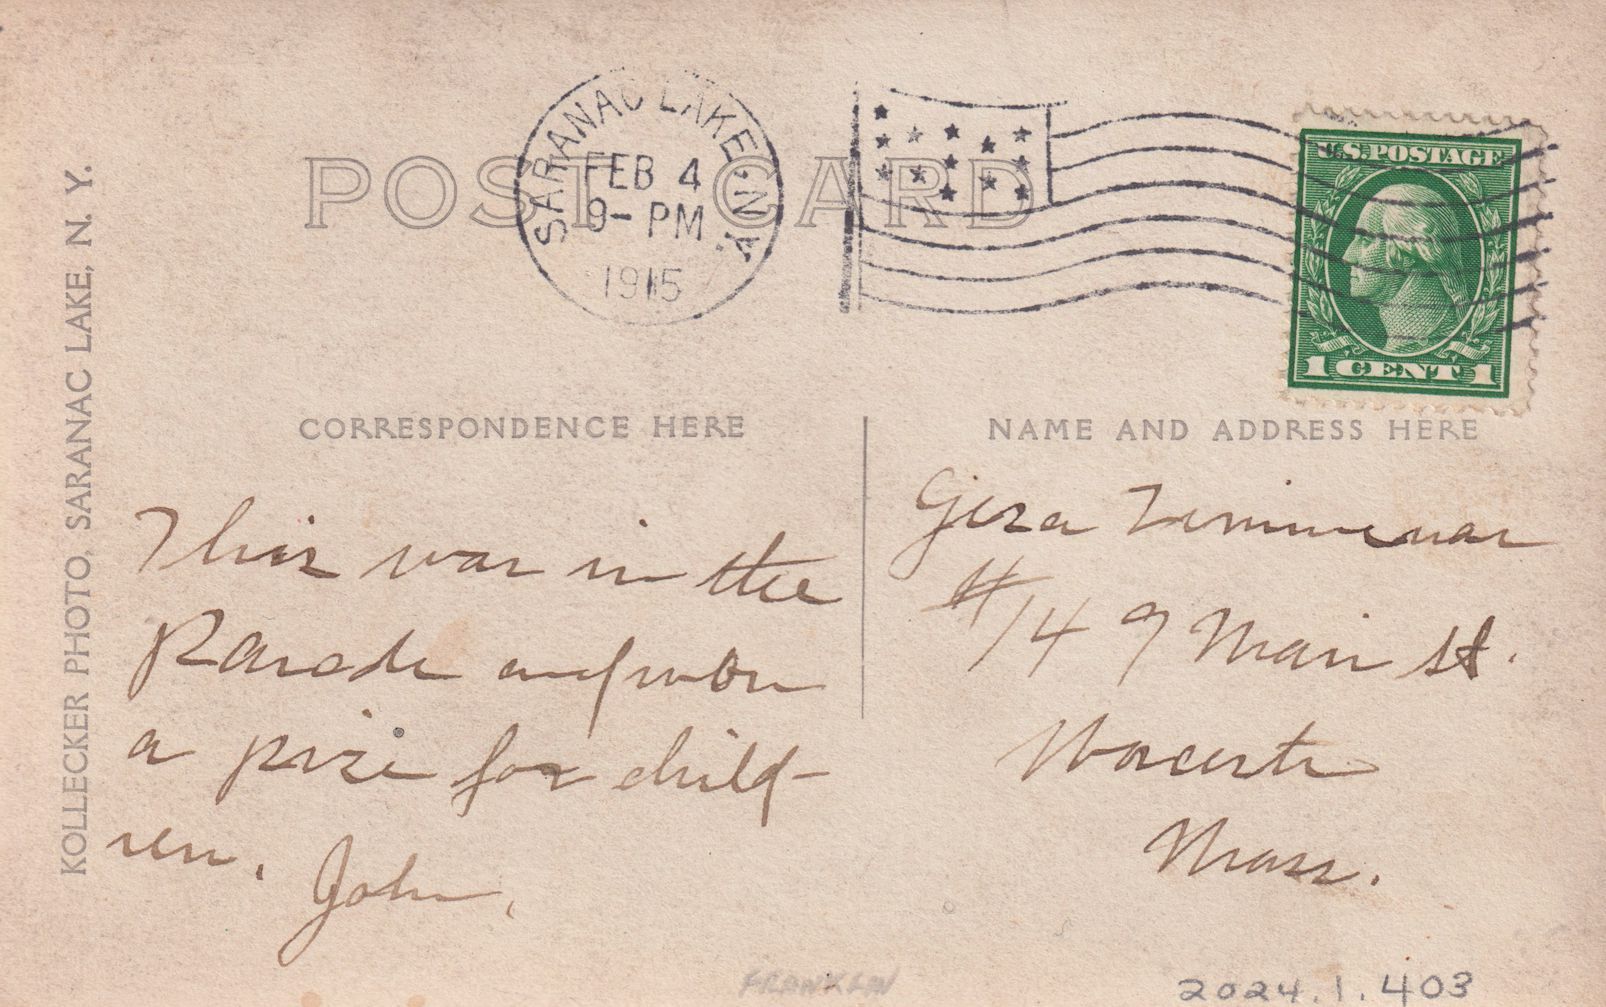 POST CARD
SARANAC LAKE, N.Y.
FEB 4
9- PM
1915
U.S. POSTAGE
1 CENT 1
KOLLECKER PHOTO, SARANAC LAKE, N. Y.
CORRESPONDENCE HERE
This was in the
Parade and won
a prize for child-
ren.
John.
NAME AND ADDRESS HERE
Geza
#149 Main St.
Worcester
Mass.
FRANKLIN
2024.1.403